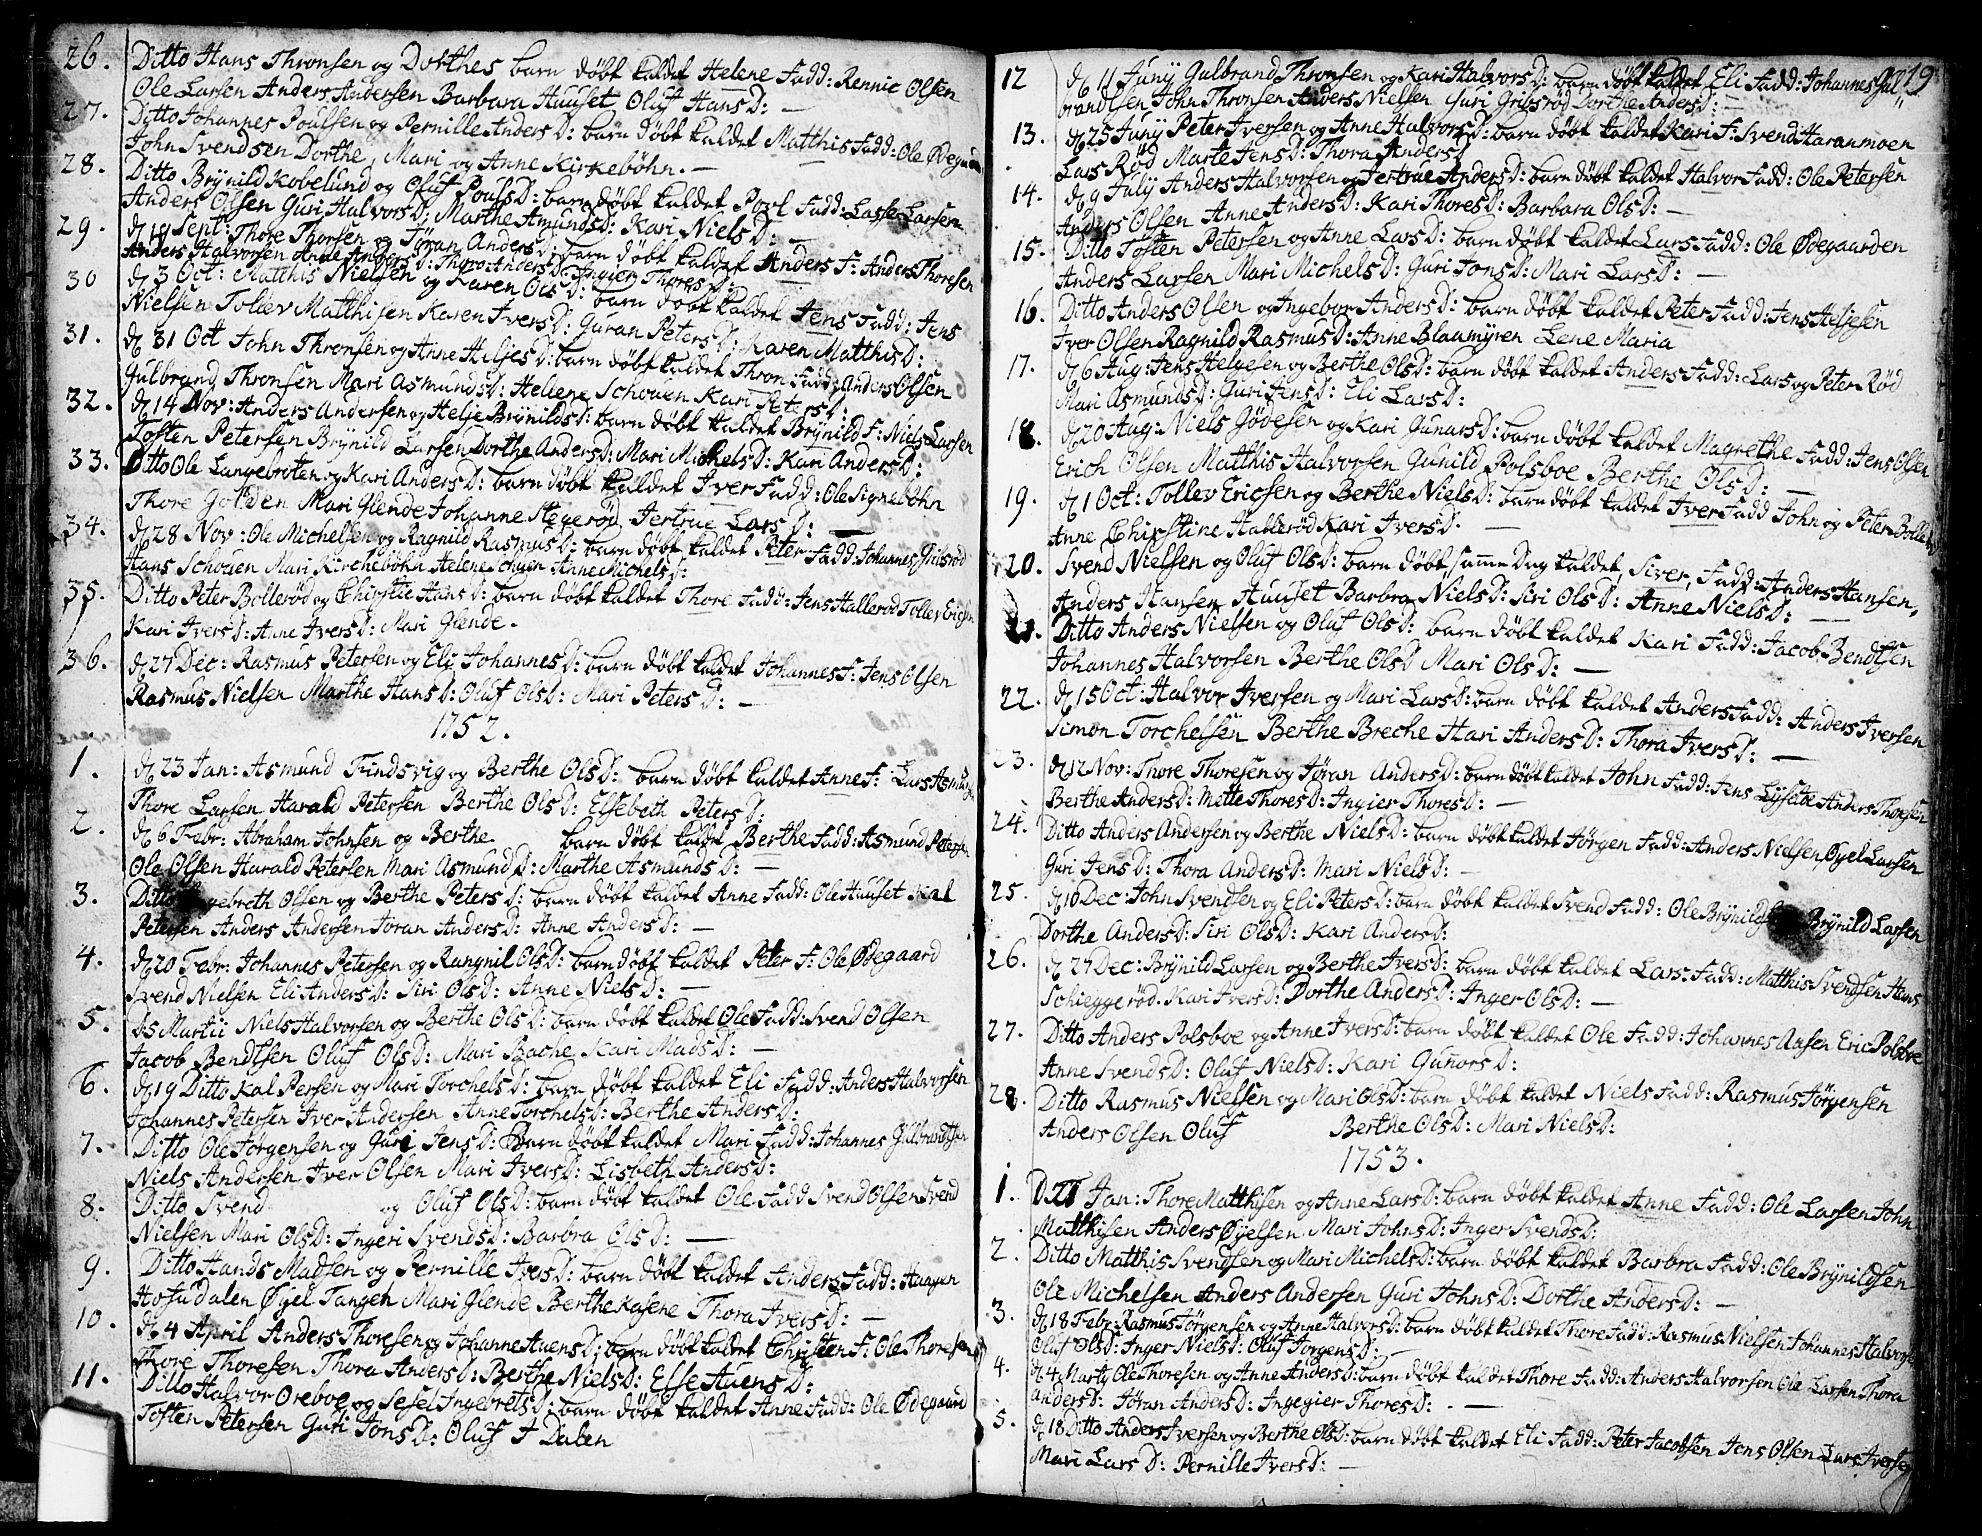 26. Ditto Hans Thronsen og Dorthes barn döbt kaldet Helene Fadd: Rennie Olsen
Ole Larsen Anders Andersen Barbara Huuset Oluf Hans D: —
27. Ditto Johannes Poulsen og Pernille Anders D: barn döbt kaldet Matthis Fadd: Ole Ødegaard
John Svendsen Dorthe, Mari og Anne Kirkebøhn. —
28. Ditto Brÿnild Kobelund og Oluf Pouls D: barn döbt kaldet Povl Fadd: Lasse Larsen
Anders Olsen Guri Halvors D: Marthe Amunds D: Kari Niels D: —
29. d 19 Sept: Thore Thorsen og Jöran Anders D: barn döbt kaldet Anders F: Anders Thoresen
Anders Halvorsen Anne Anders D: Thora Anders D: Ingier Thores D:
30 d 3 Oct: Matthis Nielsen og Karen Ols D: barn döbt kaldet Jens Fadd: Jens
Nielsen Tollev Matthisen Karen Ivers D: Guran Peters D: Karen Matthis D:
31. d 31 Oct John Thronsen og Anne Heljes D: barn döbt kaldet Thron Fadd: Anders Olsen
Gulbrand Thronsen Mari Asmunds D: Hellene Schouen Kari Peters D:
32. d 14 Nov: Anders Andersen og Helje Brÿnilds D: barn döbt kaldet Brÿnild F: Niels Larsen
Tosten Petersen Brÿnild Larsen Dorthe Anders D: Mari Michels D: Kari Anders D:
33. Ditto Ole Langebroten og Kari Anders D: barn döbt kaldet Iver Fadd: Ole Signebøhn
Thore Golden Mari Glende Johanne Stegerød Jertrue Lars D: —
34. d 28 Nov: Ole Michelsen og Ragnild Rasmus D: barn döbt kaldet Peter Fadd: Johannes Gribsrød
Hans Schouen Mari Kirchebøhn Helene Schuen Anne Michels D:
35. Ditto Peter Bollerød og Chirstie Hans D: barn döbt kaldet Thore Fadd: Jens Hallerød Tollev Ericsen
Kari Ivers D: Anne Ivers D: Mari Glende.
36. d 27 Dec: Rasmus Petersen og Eli Johannes D: barn döbt kaldet Johannes F: Jens Olsen
Rasmus Nielsen Marthe Hans D: Oluf Ols D: Mari Peters D: —
1752.
1. d 23 Jan: Asmund Findsvig og Berthe Ols D: barn döbt kaldet Anne F: Lars Asmunds
Thore Larsen Harald Petersen Berthe Ols D: Elsebeth Peters D:
2. d 6 Febr: Abraham Johnsen og Berthe barn döbt kaldet Berthe Fadd: Asmund Petersen
Ole Olsen Harald Petersen Mari Asmunds D: Marthe Asmunds D: —
3. Ditto Engebreth Olsen og Berthe Peters D: barn döbt kaldet Anne Fadd: Ole Huuset Kal
Petersen Anders Andersen Jöran Anders D: Anne Anders D: —
4. d 20 Febr: Johannes Petersen og Rangnil Ols D: barn döbt kaldet Peter F: Ole Ødegaard
Svend Nielsen Eli Anders D: Siri Ols D: Anne Niels D: —
5. D 5 Martii Niels Halvorsen og Berthe Ols D: barn döbt kaldet Ole Fadd: Svend Olsen
Jacob Bendtsen Oluf Ols D: Mari Bache Kari Mads D: —
6. d 19 Ditto Kal Persen og Mari Torchels D: barn döbt kaldet Eli Fadd: Anders Halvorsen
Johannes Petersen Iver Andersen Anne Torchels D: Berthe Anders D:
7. Ditto Ole Jörgensen og Guri Jens D: Barn döbt kaldet Mari Fadd: Johannes Gulbrandtsen
Niels Andersen Iver Olsen Mari Ivers D: Lisbeth Anders D:
8. Ditto Svend og Oluf Ols D: barn döbt kaldet Ole Fadd Svend Olsen Svend
Nielsen Mari Ols D: Ingeri Svends D: Barbra Ols D: —
9. Ditto Hands Madsen og Pernille Ivers D: barn döbt kaldet Anders Fadd: Haagen
Hofudalen Øÿel Tangen Mari Glende Berthe Kasene Thora Ivers D: —
10. d 4 April Anders Thoresen og Johanne Auens D: barn döbt kaldet Christen F: Ole Thoresen
Thore Thoresen Thora Anders D: Berthe Niels D: Else Auens D:
11. Ditto Halvor Oreboe og Sesel Ingebrets D: barn döbt kaldet Anne Fadd: Ole Ødegaard
Tosten Petersen Guri Jons D: Oluf J Dalen
19
12 d 11 Junÿ Gulbrand Thronsen og Kari Halvors D: barn döbt kaldet Eli Fadd: Johannes Gul
brandtsen John Thronsen Anders Nielsen Guri Gribsrød Dorthe Anders D: —
13. d 25 Junÿ Peter Iversen og Anne Halvors D: barn döbt kaldet Kari F: Svend Haranmoen
Lars Rød Marte Jens D: Thora Anders D
14. d 9 Julÿ Anders Halvorsen og Jertrue Anders D: barn döbt kaldet Halvor Fadd: Ole Petersen
Anders Olsen Anne Anders D: Kari Thores D: Barbara Ols D: —
15. Ditto Tosten Petersen og Anne Lars D: barn döbt kaldet Lars Fadd: Ole Ødegaarden
Anders Larsen Mari Michels D: Guri Jons D: Mari Lars D: —
16. Ditto Anders Olsen og Ingebor Anders D: barn döbt kaldet Peter Fadd: Jens Heljesen
Iver Olsen Ragnild Rasmus D: Anne Blaamÿren Lene Maria
17. d 6 Aug: Jens Helgesen og Berthe Ols D: barn döbt kaldet Anders Fadd: Lars og Peter Rød
Mari Asmunds D: Guri Jens D: Eli Lars D:
18. d 20 Aug: Niels Jödesen og Kari Gunars D: barn döbt kaldet Magrethe Fadd: Jens Olsen
Erich Olsen Matthis Halvorsen Gunild Polsboe Berthe Ols D: —
19. d 1 Oct: Tollev Ericsen og Berthe Niels D: barn döbt kaldet Iver Fadd John og Peter Bollerød
Anne Chirstine Hallerød Kari Ivers D. —
20. Svend Nielsen og Oluf Ols D: barn döbt samme Dag kaldet, Siver, Fadd: Anders Hansen,
Anders Hansen Huuset Barbra Niels D: Siri Ols D: Anne Niels D: —
21. Ditto Anders Nielsen og Oluf Ols D: barn döbt kaldet Kari Fadd: Jacob Bendtsen
Johannes Halvorsen Berthe Ols D Mari Ols D: —
22. d 15 Oct: Halvor Iversen og Mari Lars D: barn döbt kaldet Anders Fadd: Anders Iversen
Simon Torchelsen Berthe Breche Hari Anders D: Thora Ivers D: —
23. d 12 Nov: Thore Thoresen og Jøran Anders D: barn döbt kaldet John Fadd: Jens Lÿseboe Anders Thoresen
Berthe Anders D: Mette Thores D: Ingier Thores D: —
24. Ditto Anders Andersen og Berthe Niels D: barn döbt kaldet Jørgen Fadd: Anders Nielsen Øyel Larsen
Guri Jens D: Thora Anders D: Mari Niels D: —
25. d 10 Dec: John Svendsen og Eli Peters D: barn döbt kaldet Svend Fadd: Ole Brÿnildsen Brÿnild Larsen
Dorthe Anders D: Siri Ols D: Kari Anders D:
26. d 27 Dec: Brÿnild Larsen og Berthe Ivers D: barn döbt kaldet Lars: Fadd: Matthis Svendsen Hans
Schieggerød. Kari Ivers D: Dorthe Anders D: Inger Ols D: —
27. Ditto Anders Polsboe og Anne Ivers D: barn döbt kaldet Ole Fadd: Johannes Aasen Eric Polsboe
Anne Svends D: Oluf Niels D: Kari Gunors D:
28. Ditto Rasmus Nielsen og Mari Ols D: barn döbt kaldet Niels Fadd: Rasmus Jørgensen
Anders Olsen Oluf Berthe Ols D: Mari Niels D:
1753.
1. D 21 Jan: Thore Matthisen og Anne Lars D: barn döbt kaldet Anne Fadd: Ole Larsen John
Matthisen Anders Øÿelsen Mari Johns D: Inger Svends D:
2. Ditto Matthis Svendsen og Mari Michels D: barn döbt kaldet Barbra Fadd: Ole Brÿnildsen
Ole Michelsen Anders Andersen Guri Johns D: Dorthe Anders D: —
3. d 18 Febr: Rasmus Jørgensen og Anne Halvors D: barn döbt kaldet Thore Fadd: Rasmus Nielsen Johannes Halvorsen
Oluf Ols D: Inger Niels D: Oluf Jorgens D: —
4. d 4 Marty Ole Thoresen og Anne Anders D: barn döbt kaldet Thore Fadd: Anders Halvorsen Ole Larsen Thora
Anders D: Jöran Anders D: Ingegier Thores D: —
5. d 18 Ditto Anders Iversen og Berthe Ols D: barn döbt kaldet Eli Fadd: Peter Jacobsen Jens Olsen Lars Iversen
Mari Lars D: Pernille Ivers D: —